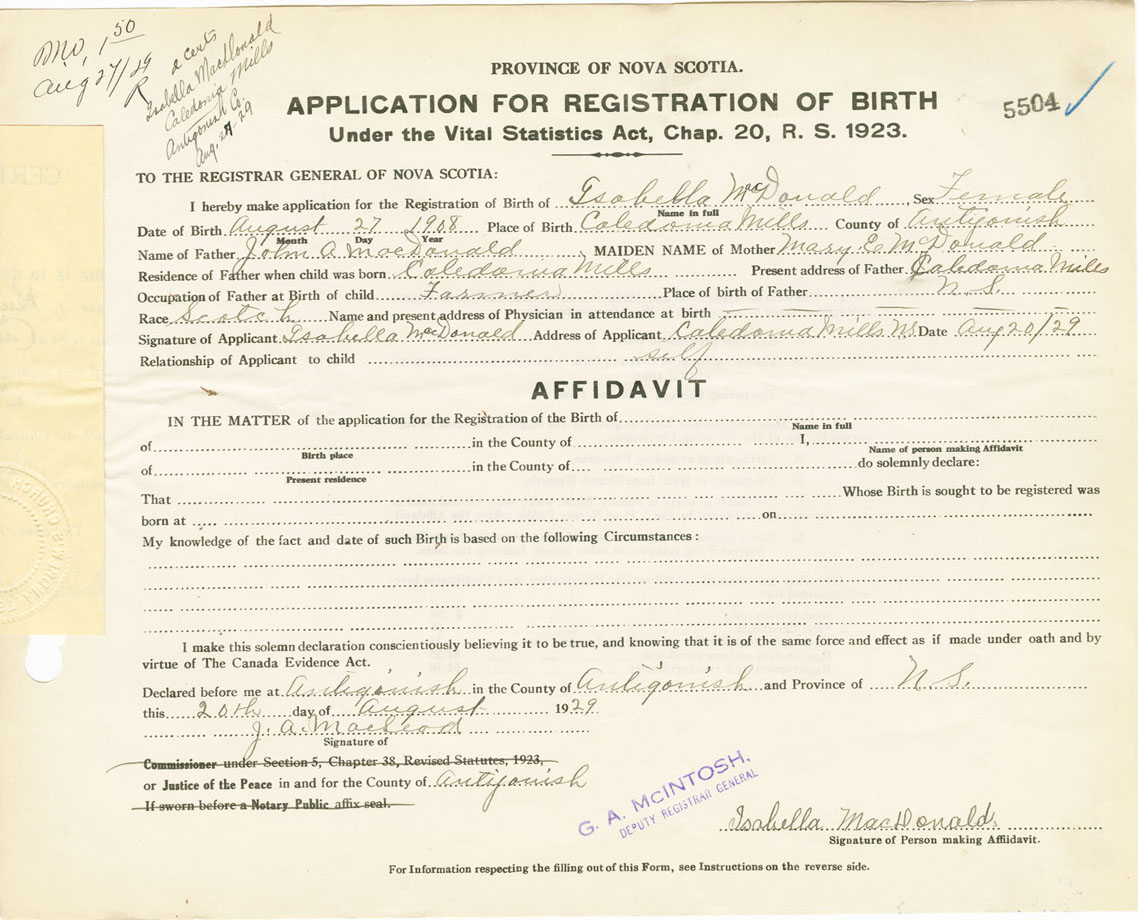 Mo, 1 50
Aug 27/29
R
2 certs
Isabella MacDonald
Caledonia Mills
Antigonish Co
Aug. 27-29
PROVINCE OF NOVA SCOTIA.
APPLICATION FOR REGISTRATION OF BIRTH
5504
Under the Vital Statistics Act, Chap. 20, R. S. 1923.
TO THE REGISTRAR GENERAL OF NOVA SCOTIA:
I hereby make application for the Registration of Birth of Isabella McDonald, Sex Female
Name in full
Date of Birth August 27 1908 Place of Birth Caledonia Mills County of Antigonish
Month Day Year
Name of Father John A MacDonald MAIDEN NAME of Mother Mary E McDonald
Residence of Father when child was born Caledonia Mills Present address of Father Caledonia Mills
Occupation of Father at Birth of child Farmer Place of birth of Father N.S.
Race Scotch Name and present address of Physician in attendance at birth
Signature of Applicant Isabella McDonald Address of Applicant Caledonia Mills NS Date Aug 20/29
Relationship of Applicant to child self
AFFIDAVIT
IN THE MATTER of the application for the Registration of the Birth of
Name in full
of in the County of I,
Birth place Name of person making Affidavit
of in the County of do solemnly declare:
Present residence
That Whose Birth is sought to be registered was
born at on
My knowledge of the fact and date of such Birth is based on the following Circumstances:
I make this solemn declaration conscientiously believing it to be true, and knowing that it is of the same force and effect as if made under oath and by
virtue of The Canada Evidence Act.
Declared before me at Antigonish in the County of Antigonish and Province of N.S.
this 20th day of August 1929
J. A. MacLeod
Signature of
Commissioner under Section 5, Chapter 38, Revised Statutes, 1923,
or Justice of the Peace in and for the County of Antigonish
If sworn before a Notary Public affix seal.
G. A. MCINTOSH.
DEPUTY REGISTRAR GENERAL
Isabella MacDonald
Signature of Person making Affidavit.
For Information respecting the filling out of this Form, see Instructions on the reverse side.